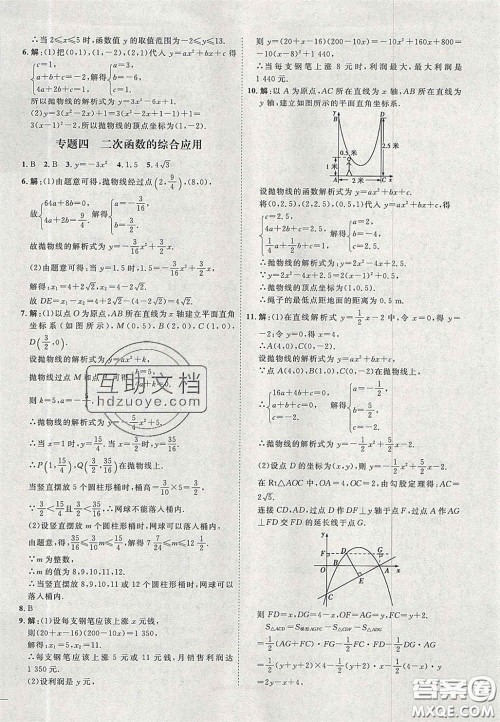 ∴当 2≤x≤5 时,函数值 y 的取值范围为 -2≤y≤13.
6.解:(1)把(0,1),(1,-2),(2,1)代入 y=ax²+bx+c 得
c=1,
a+b+c=-2,
4a+2b+c=1,
解得
a=3,
b=-6,
c=1.
所以抛物线的解析式为 y=3x²-6x+1.
(2)y=3x²-6x+1=3(x²-2x)+1=3(x-1)²-2,
所以抛物线的顶点坐标为(1,-2).
专题四 二次函数的综合应用
1.B 2.B 3.y=-3x² 4.1.5 5.4√3
6.解:(1)由题意可得,抛物线经过点(2,9/4),(8,0).
故
64a+8b=0,
4a+2b=9/4.
解得
a=-3/16,
b=3/2.
故抛物线的解析式为 y=-3/16x²+3/2x.
(2)由题意可得:当 y=1.5 时,1.5=-3/16x²+3/2x.
解得 x₁=4+2√2,x₂=4-2√2.
故 DE=x₁-x₂=4+2√2-(4-2√2)=4√2.
7.解:(1)以点 O 为原点,AB 所在直线为 x 轴建立平面直角
坐标系(如图所示),M(0,5),B(2,0),C(1,0),
D(3/2,0).
设抛物线的解析式为 y=ax²+k,
抛物线过点 M 和点 B,则 k=5,a=-5/4.
∴抛物线的解析式为 y=-5/4x²+5.
∴当 x=1 时,y=15/4;当 x=3/2 时,y=35/16.
∴P(1,15/4),Q(3/2,35/16).
当竖直摆放 5 个圆柱形桶时,桶高=3/10×5=3/2.
∵3/2<15/4且3/2<35/16,∴网球不能落入桶内.
(2)设竖直摆放 m 个圆柱形桶时,网球可以落入桶内.
由题意,得35/16≤3/10m≤15/4.解得 7 7/24≤m≤12 1/2.
∵m 为整数,
∴m 的值为 8,9,10,11,12.
∴当竖直摆放 8,9,10,11 或 12 个圆柱形桶时,网球可以
落入桶内.
8.B
9.解:(1)设每支钢笔应该上涨 x 元钱,
则(20+x-16)(200-10x)=1 350.
解得 x₁=5,x₂=11(舍去).
∴每支钢笔应该上涨 5 元钱,月销售利润达到
1 350 元.
(2)设利润是 y 元,
则 y=(20+x-16)(200-10x)=-10x²+160x+
800=-10(x-8)²+1 440.
∴当每支钢笔上涨 8 元时,利润最大,最大利润是
1 440 元.
10.解:以 A 为原点,AC 所在直线为 x 轴,AB 所在直线为
y 轴,建立如图所示的平面直角坐标系.
y
B
D
0.5米
1米
A
2米
C
x
设抛物线的函数解析式为 y=ax²+bx+c,
c=2.5,
4a+2b+c=2.5,
1/4a+1/2b+c=1.
解得
a=2,
b=-4,
c=2.5.
∴抛物线的解析式为 y=2x²-4x+2.5.
∵y=2x²-4x+2.5=2(x-1)²+0.5,
∴抛物线的顶点坐标为(1,0.5).
∴绳子的最低点距地面的距离为 0.5 m.
11.解:(1)在直线解析式 y=1/2x-2 中,令 x=0,得 y=
-2;令 y=0,得 x=4.
∴A(4,0),C(0,-2).
∵点 A(4,0),B(1,0),C(0,-2)在抛物线上,
∴
16a+4b+c=0,
a+b+c=0,
c=-2.
解得
a=-1/2,
b=5/2,
c=-2.
∴抛物线的解析式为 y=-1/2x²+5/2x-2.
(2)设点 D 的坐标为(x,y),则 y=-1/2x²+5/2x-2.
在 Rt△AOC 中,OA=4,OC=2,由勾股定理得 AC=
2√5.
连接 CD,AD.过点 D 作 DF⊥y 轴于点 F,过点 A 作
AG⊥FD 交 FD 的延长线于点 G.
y
F
D
G
O
B
A
x
E
C
则 FD=x,DG=4-x,OF=AG=y,FC=y+2.
S△ACD=S梯形AGFC-S△CDF-S△ADG
=1/2(AG+FC)·FG-1/2FC·FD-1/2DG·AG
=1/2(y+y+2)×4-1/2(y+2)x-1/2(4-x)·y
=2y-x+4,
互助文档
答案圈
MXQE.COM